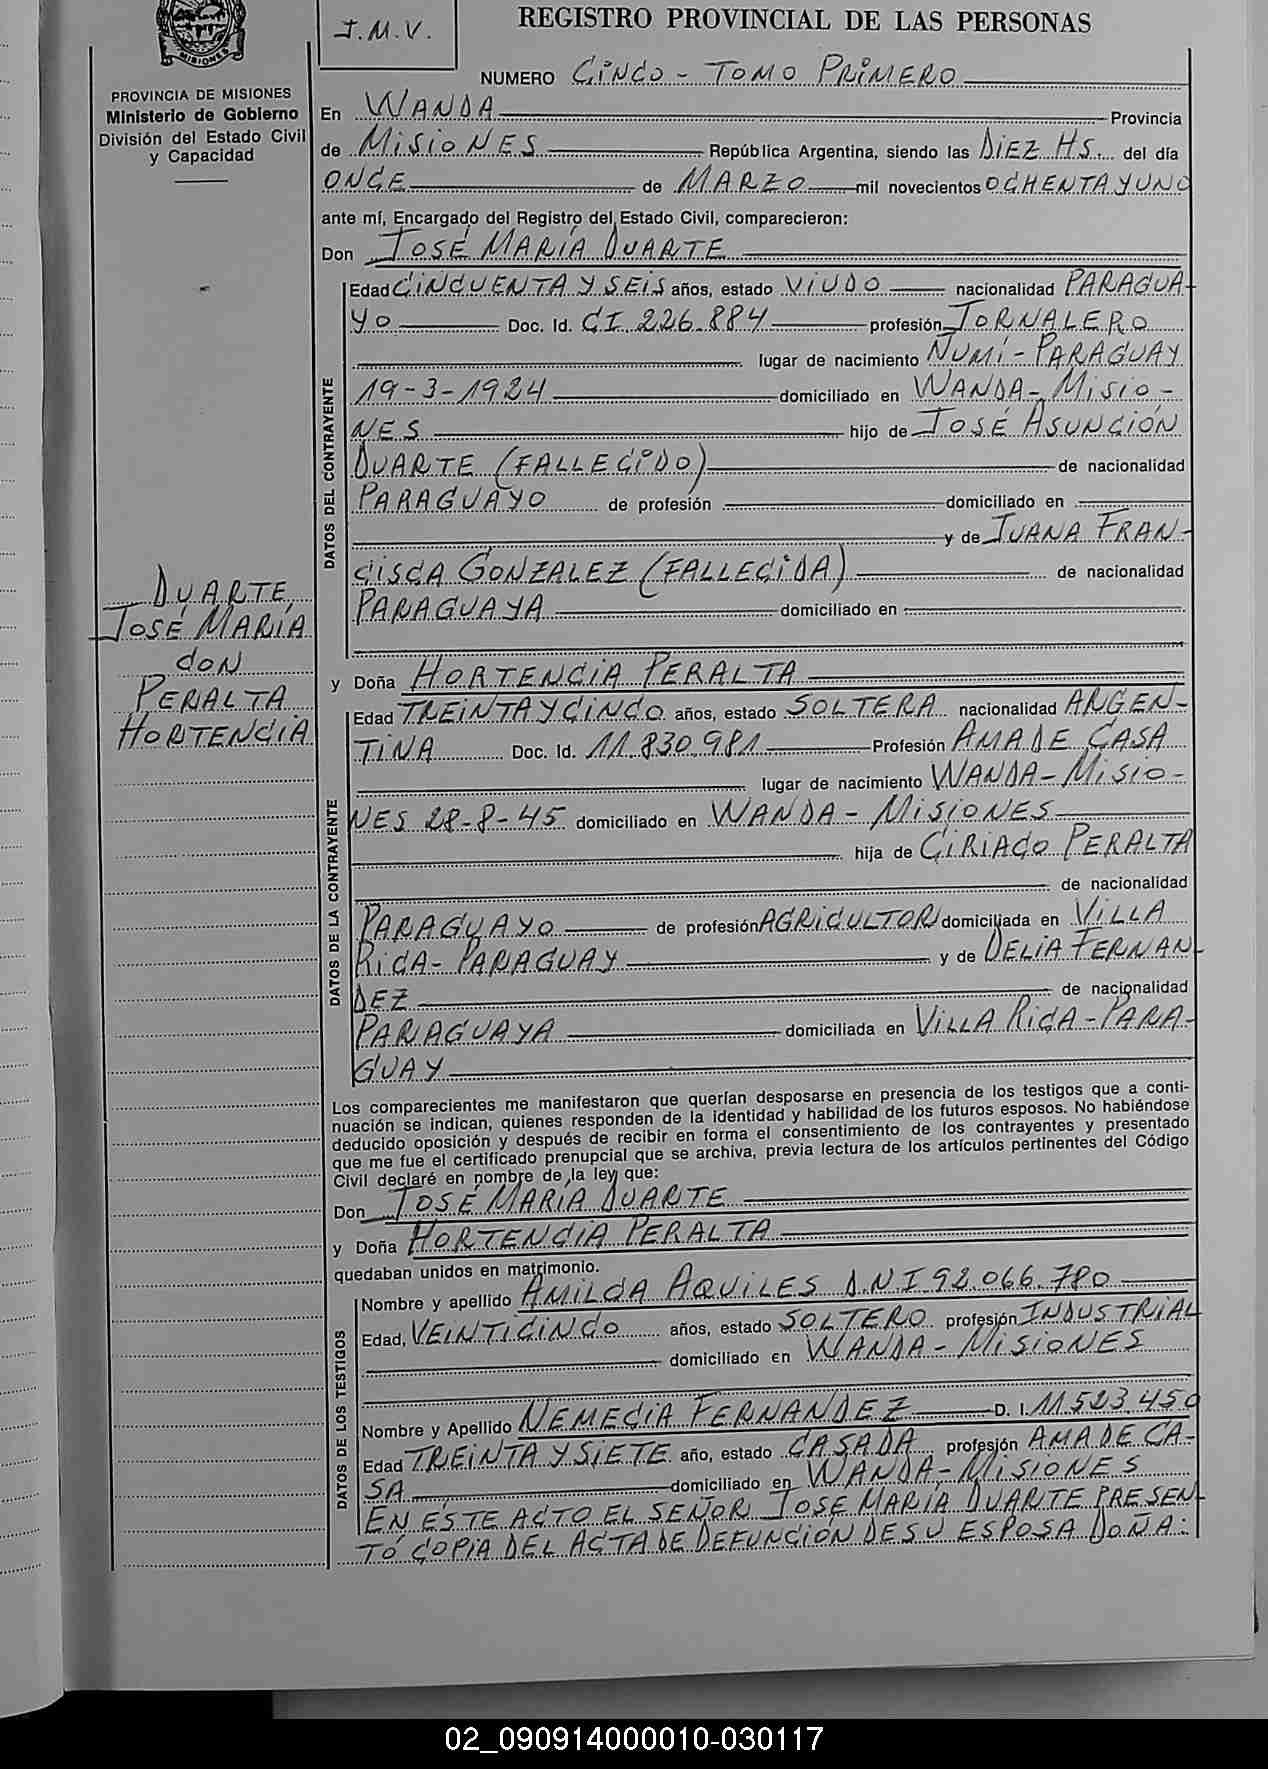 MISIONES
J.M.V.
REGISTRO PROVINCIAL DE LAS PERSONAS
PROVINCIA DE MISIONES
Ministerio de Gobierno
División del Estado Civil
y Capacidad
NUMERO CINCO - TOMO PRIMERO
En WANDA Provincia
de MISIONES República Argentina, siendo las DIEZ HS. del día
ONCE de MARZO mil novecientos OCHENTA Y UNO
ante mí, Encargado del Registro del Estado Civil, comparecieron:
Don JOSÉ MARÍA DUARTE
DATOS DEL CONTRAYENTE
Edad CINCUENTA Y SEIS años, estado VIUDO nacionalidad PARAGUA-
YO Doc. Id. CI. 226.884 profesión JORNALERO
lugar de nacimiento NUMÍ - PARAGUAY
19-3-1924 domiciliado en WANDA - MISIO-
NES hijo de JOSÉ ASUNCIÓN
DUARTE (FALLECIDO) de nacionalidad
PARAGUAYO de profesión domiciliado en
y de JUANA FRAN-
CISCA GONZALEZ (FALLECIDA) de nacionalidad
PARAGUAYA domiciliado en
DUARTE,
JOSÉ MARÍA
CON
PERALTA
HORTENCIA
y Doña HORTENCIA PERALTA
DATOS DE LA CONTRAYENTE
Edad TREINTA Y CINCO años, estado SOLTERA nacionalidad ARGEN-
TINA Doc. Id. 11.830.981 Profesión AMA DE CASA
lugar de nacimiento WANDA - MISIO-
NES 28-8-45 domiciliado en WANDA - MISIONES
hija de CIRIACO PERALTA
de nacionalidad
PARAGUAYO de profesión AGRICULTOR domiciliada en VILLA
RICA - PARAGUAY y de DELIA FERNAN-
DEZ de nacionalidad
PARAGUAYA domiciliada en VILLA RICA - PARA-
GUAY
Los comparecientes me manifestaron que querían desposarse en presencia de los testigos que a conti-
nuación se indican, quienes responden de la identidad y habilidad de los futuros esposos. No habiéndose
deducido oposición y después de recibir en forma el consentimiento de los contrayentes y presentado
que me fue el certificado prenupcial que se archiva, previa lectura de los artículos pertinentes del Código
Civil declaré en nombre de la ley que:
Don JOSÉ MARÍA DUARTE
y Doña HORTENCIA PERALTA
quedaban unidos en matrimonio.
DATOS DE LOS TESTIGOS
Nombre y apellido AMILDA AQUILES D.N.I. 92.066.780
Edad, VEINTICINCO años, estado SOLTERO profesión INDUSTRIAL
domiciliado en WANDA - MISIONES
Nombre y Apellido NEMECIA FERNANDEZ D. I. 11.523.450
Edad TREINTA Y SIETE año, estado CASADA profesión AMA DE CA-
SA domiciliado en WANDA - MISIONES
EN ÉSTE ACTO EL SEÑOR JOSÉ MARÍA DUARTE PRESEN-
TÓ COPIA DEL ACTA DE DEFUNCIÓN DE SU ESPOSA DOÑA:
02_090914000010-030117